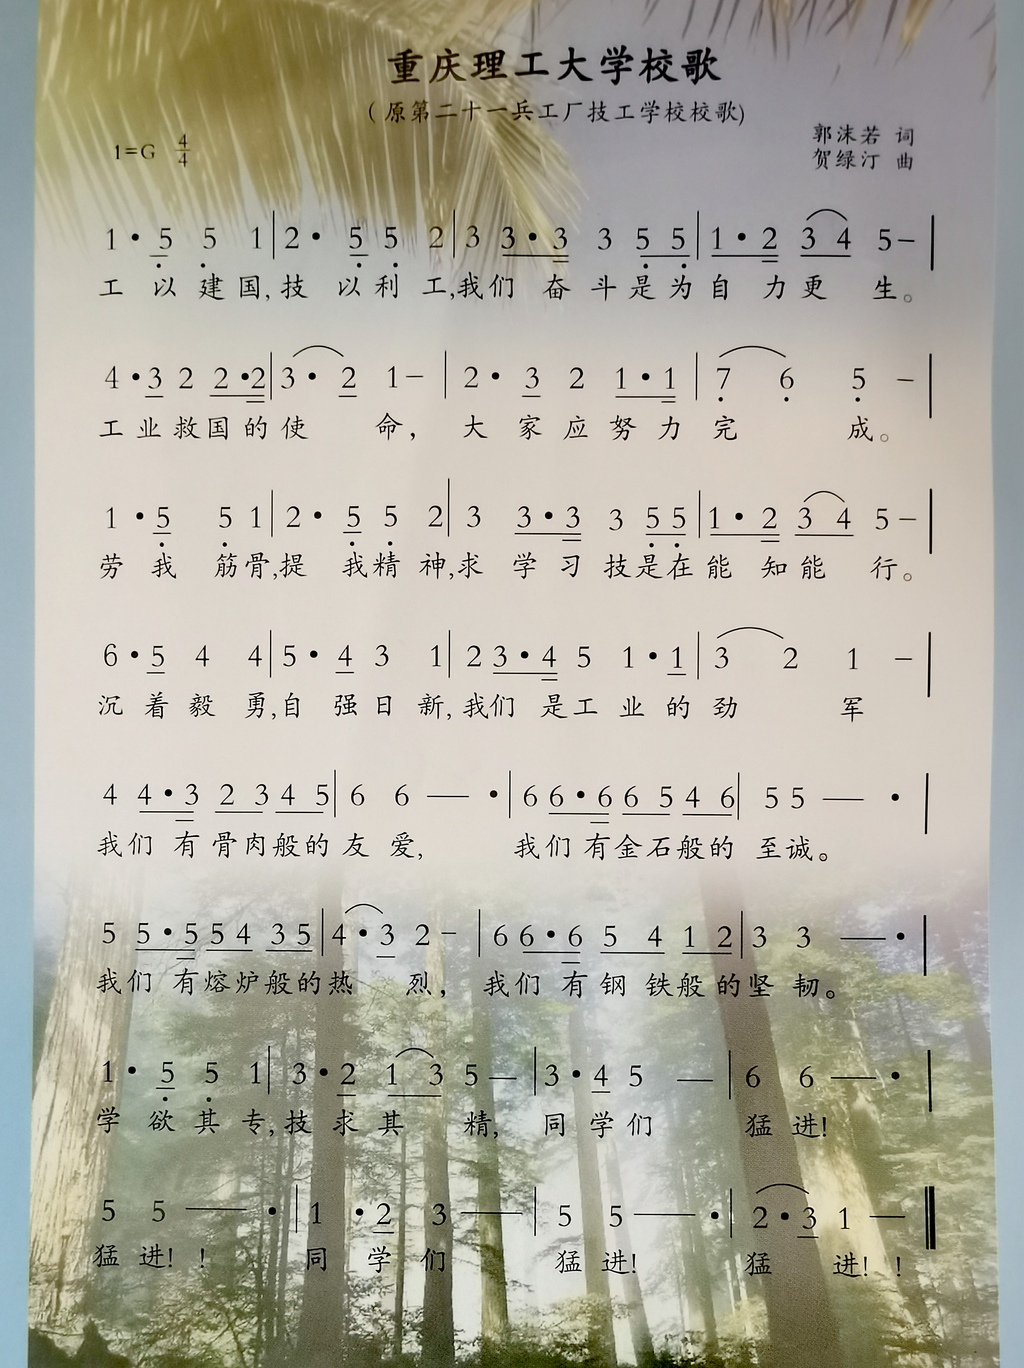 重庆理工大学校歌
(原第二十一兵工厂技工学校校歌)
1=G 4/4
郭沫若 词
贺绿汀 曲
1 · 5 5 1 | 2 · 5 5 2 | 3 3 · 3 3 5 5 | 1 · 2 3 4 5 – |
工 以 建 国, 技 以 利 工, 我们 奋 斗 是 为 自 力 更 生。
4 · 3 2 2 · 2 | 3 · 2 1 – | 2 · 3 2 1 · 1 | 7 6 5 – |
工 业 救 国 的 使 命, 大 家 应 努 力 完 成。
1 · 5 5 1 | 2 · 5 5 2 | 3 3 · 3 3 5 5 | 1 · 2 3 4 5 – |
劳 我 筋 骨, 提 我 精 神, 求 学 习 技 是 在 能 知 能 行。
6 · 5 4 4 | 5 · 4 3 1 | 2 3 · 4 5 1 · 1 | 3 2 1 – |
沉 着 毅 勇, 自 强 日 新, 我们 是 工 业 的 劲 军
4 4 · 3 2 3 4 5 | 6 6 — · | 6 6 · 6 6 5 4 6 | 5 5 — · |
我们 有 骨 肉 般 的 友 爱, 我们 有 金 石 般 的 至 诚。
5 5 · 5 5 4 3 5 | 4 · 3 2 – | 6 6 · 6 5 4 1 2 | 3 3 — · |
我们 有 熔 炉 般 的 热 烈, 我们 有 钢 铁 般 的 坚 韧。
1 · 5 5 1 | 3 · 2 1 3 5 — | 3 · 4 5 — | 6 6 — · |
学 欲 其 专, 技 求 其 精, 同 学 们 猛 进!
5 5 — · | 1 · 2 3 — | 5 5 — · | 2 · 3 1 — ‖
猛 进! ! 同 学 们 猛 进! 猛 进! !